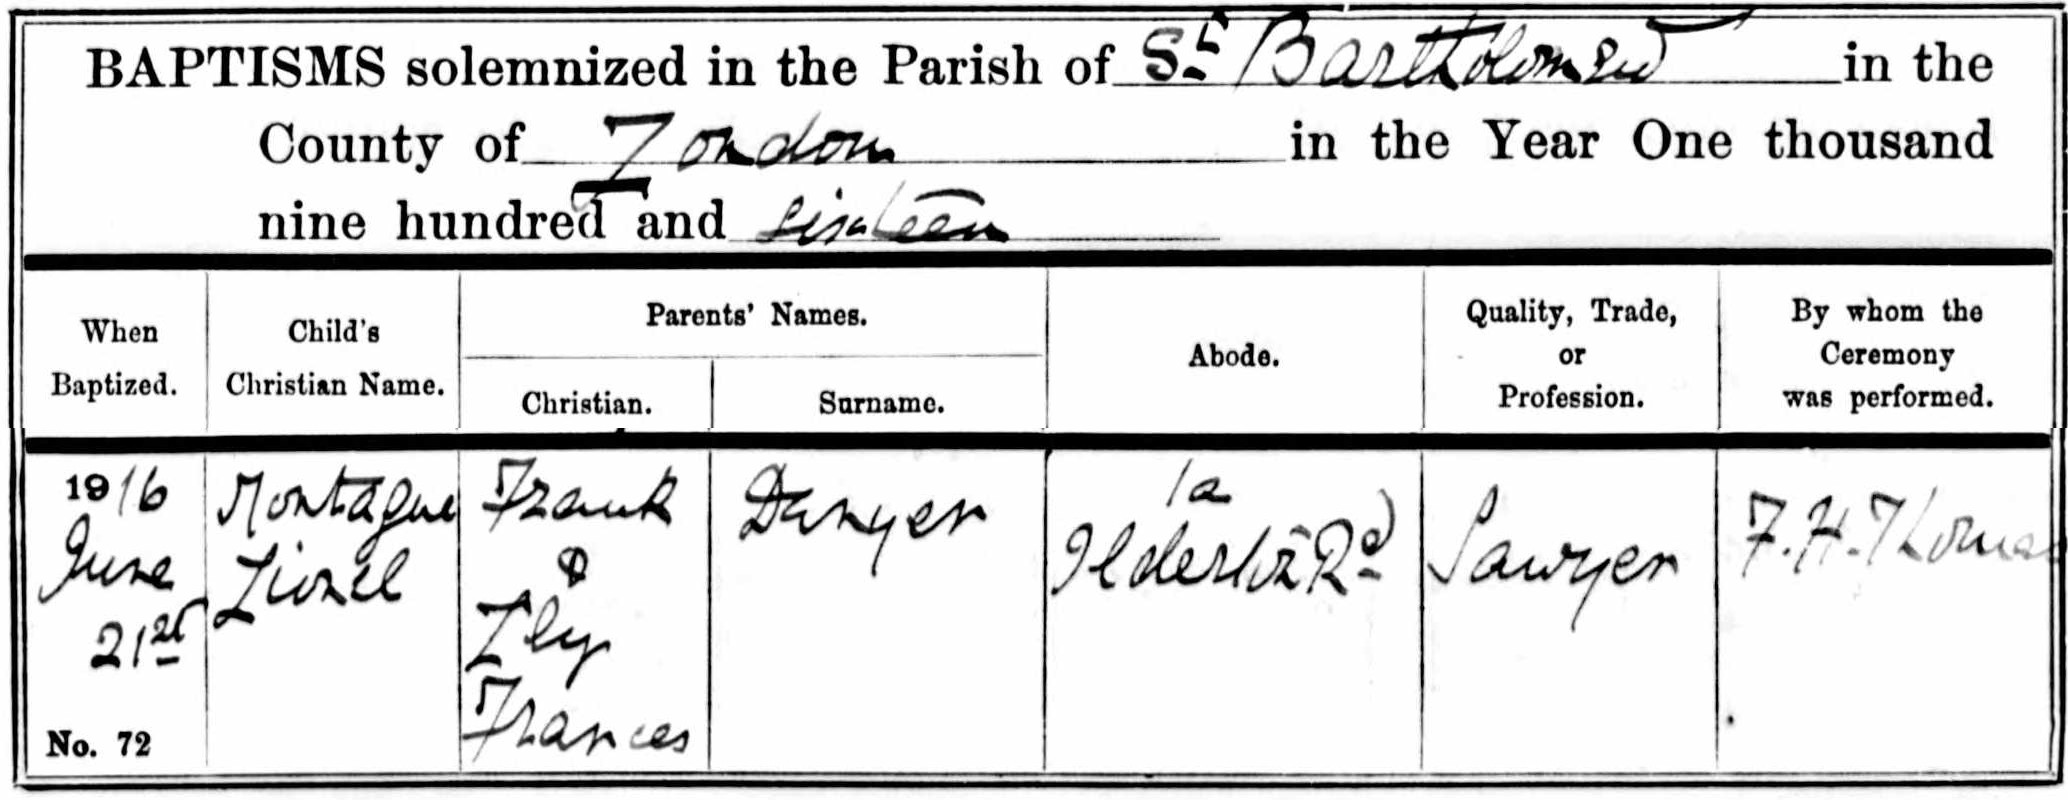 BAPTISMS solemnized in the Parish of St Bartholomew in the
County of London in the Year One thousand
nine hundred and sixteen
When Baptized.
Child's Christian Name.
Parents' Names.
Christian.
Surname.
Abode.
Quality, Trade, or Profession.
By whom the Ceremony was performed.
1916
June
21st
No. 72
Montague
Lionel
Frank
&
Lily
Frances
Danyer
1a
Ilderton Rd
Sawyer
F. H. Thomas